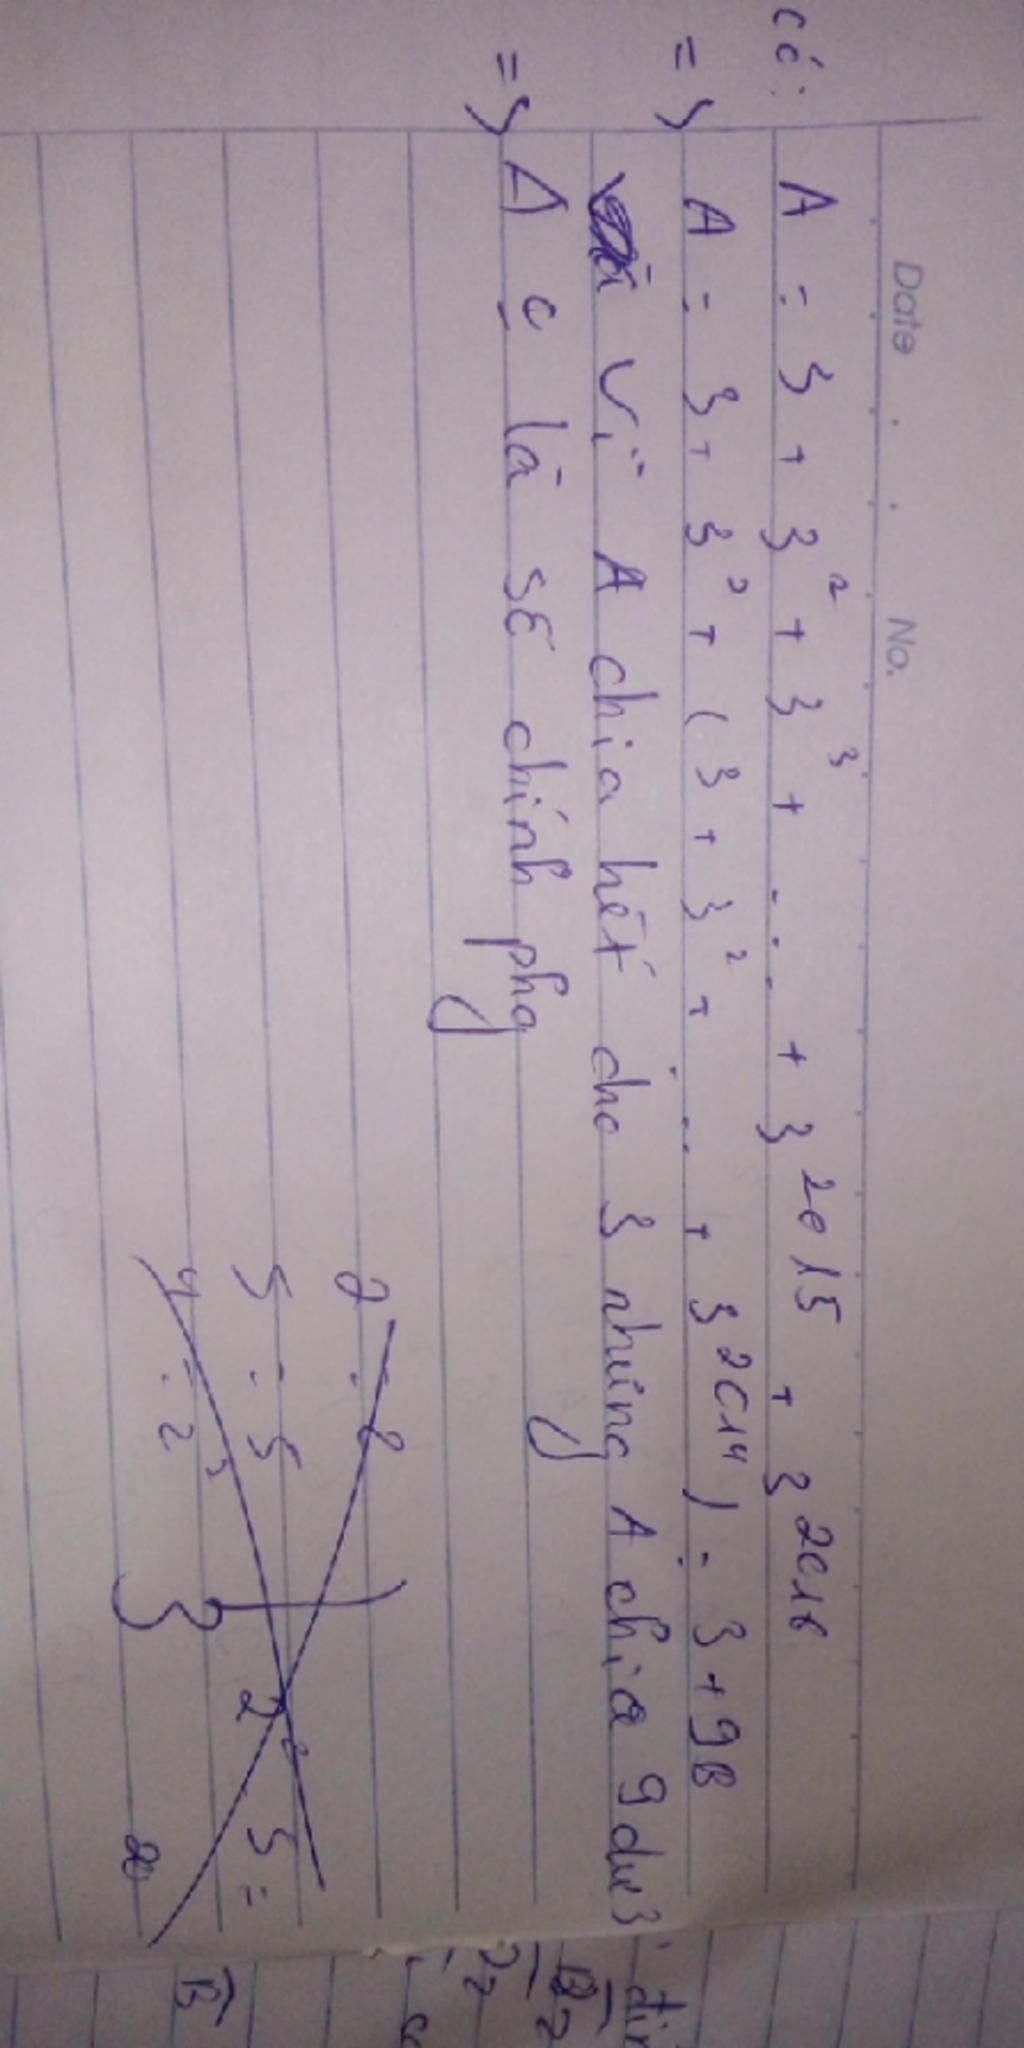 Date No.
có: A = 3 + 3² + 3³ + ... + 3²⁰¹⁵ + 3²⁰¹⁶
=> A = 3 + 3² + (3 + 3² + ... + 3²⁰¹⁴) = 3 + 9B
Vì A chia hết cho 3 nhưng A chia 9 dư 3
=> A c là số chính phg
2 = 2
5 = 5
4 = 2²
2² . 5 =